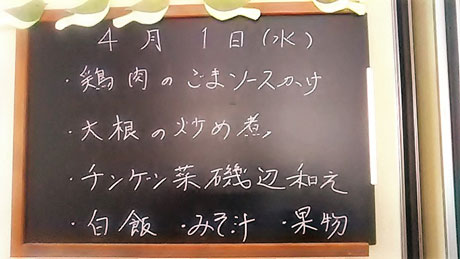 4月1日(水)
・鶏肉のごまソースかけ
・大根の炒め煮
・チンゲン菜磯辺和え
・白飯 ・みそ汁 ・果物